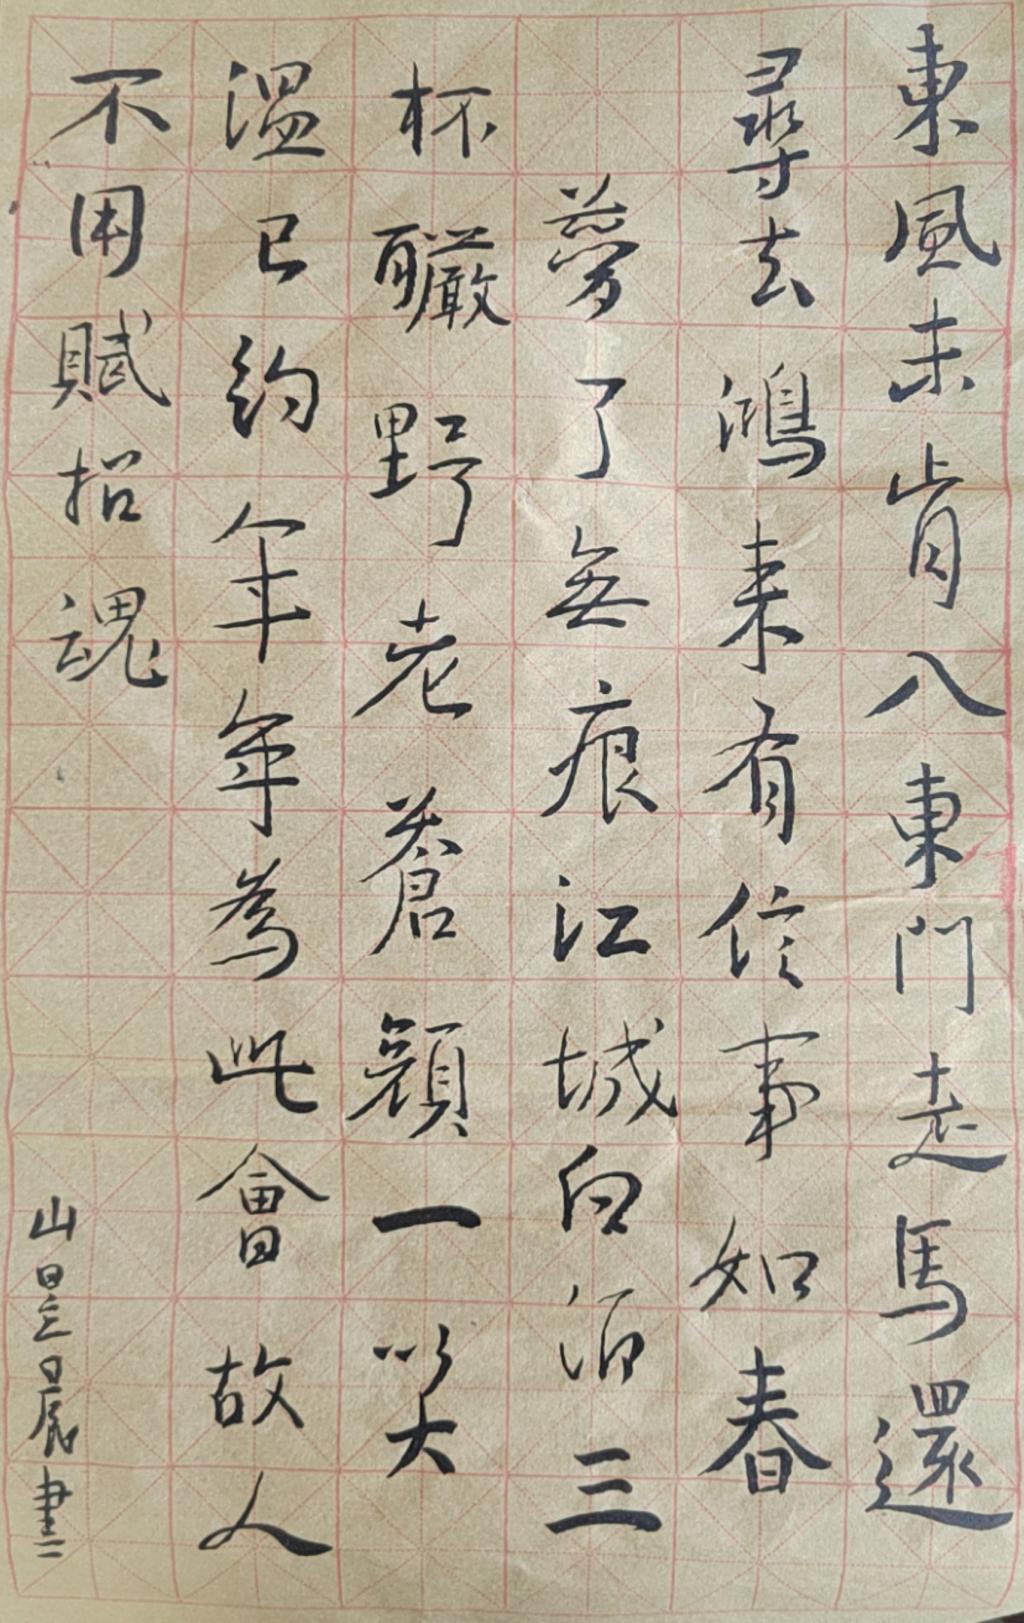 東風未肯入東門走馬還
尋去鴻來有信事如春
夢了無痕江城白酒三
杯釅野老蒼顏一笑
溫已約年年為此會故人
不用賦招魂
山昱晨書